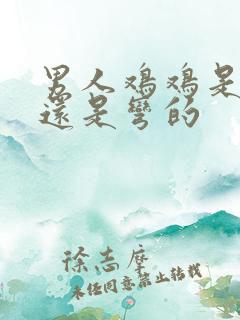 男人鸡鸡是
還是彎的
徐志摩
未经同意禁止转载